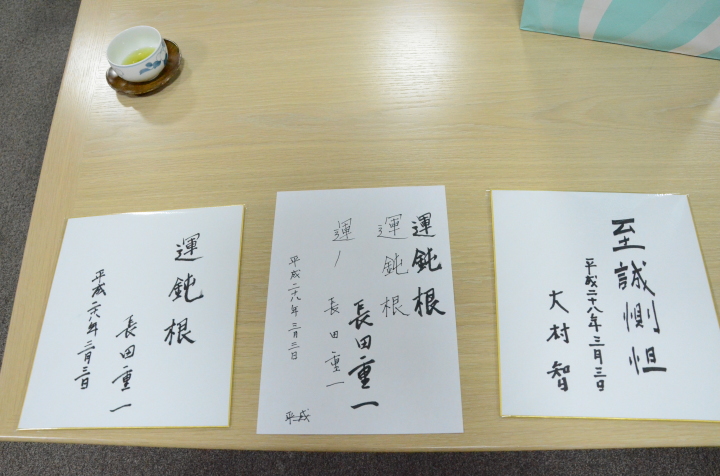 運鈍根
長田重一
平成二十八年三月三日
運鈍根
運鈍根
運ノ
長田重一
長田重一
平成二十八年三月三日
平成
至誠惻怛
平成二十八年三月三日
大村智